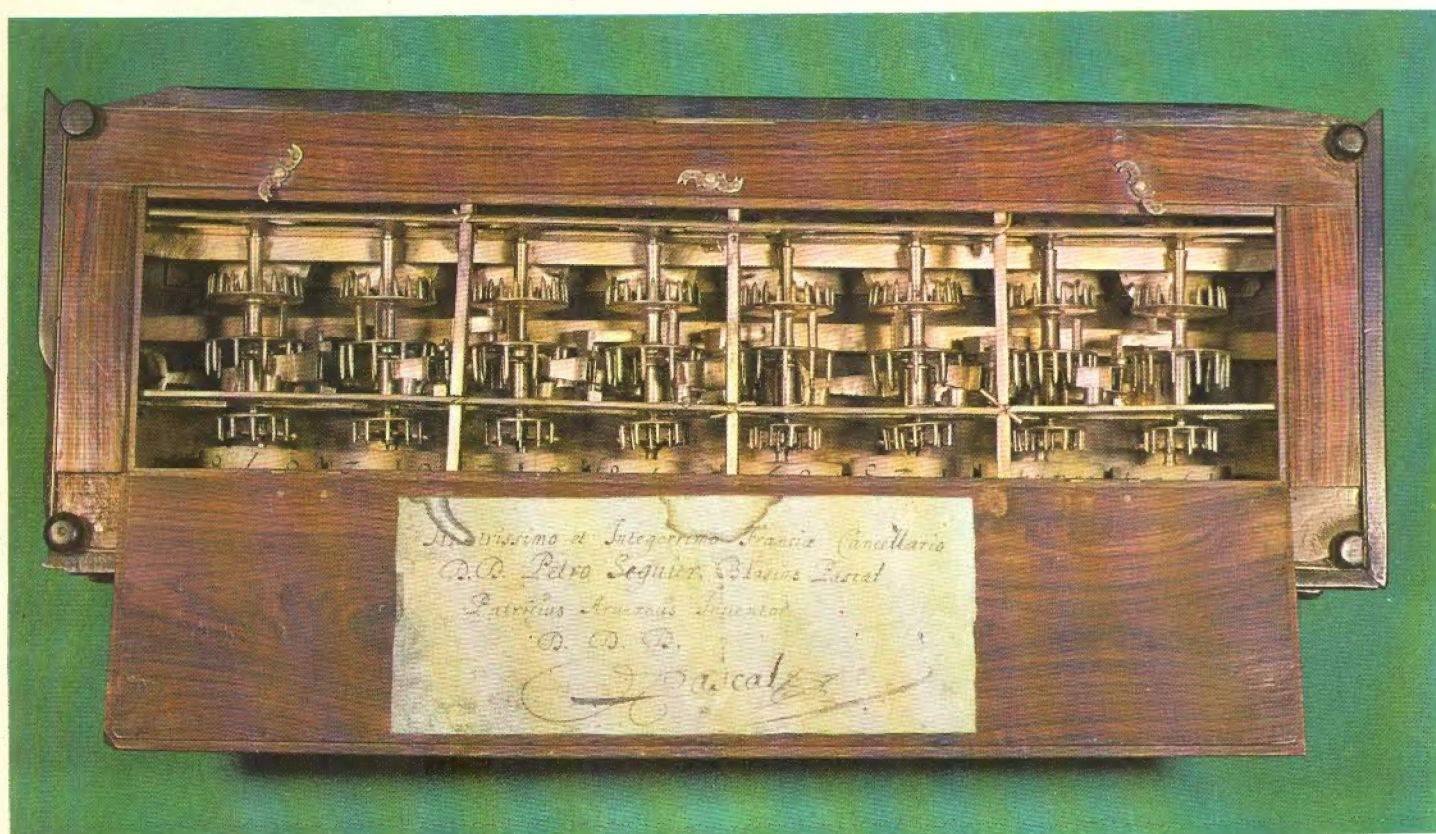 et Integerrimo Franciæ Cancellario
D.D. Petro Seguier, Blasius Pascal
Patricius Arvernus Inventor
D. D. D.
Pascal